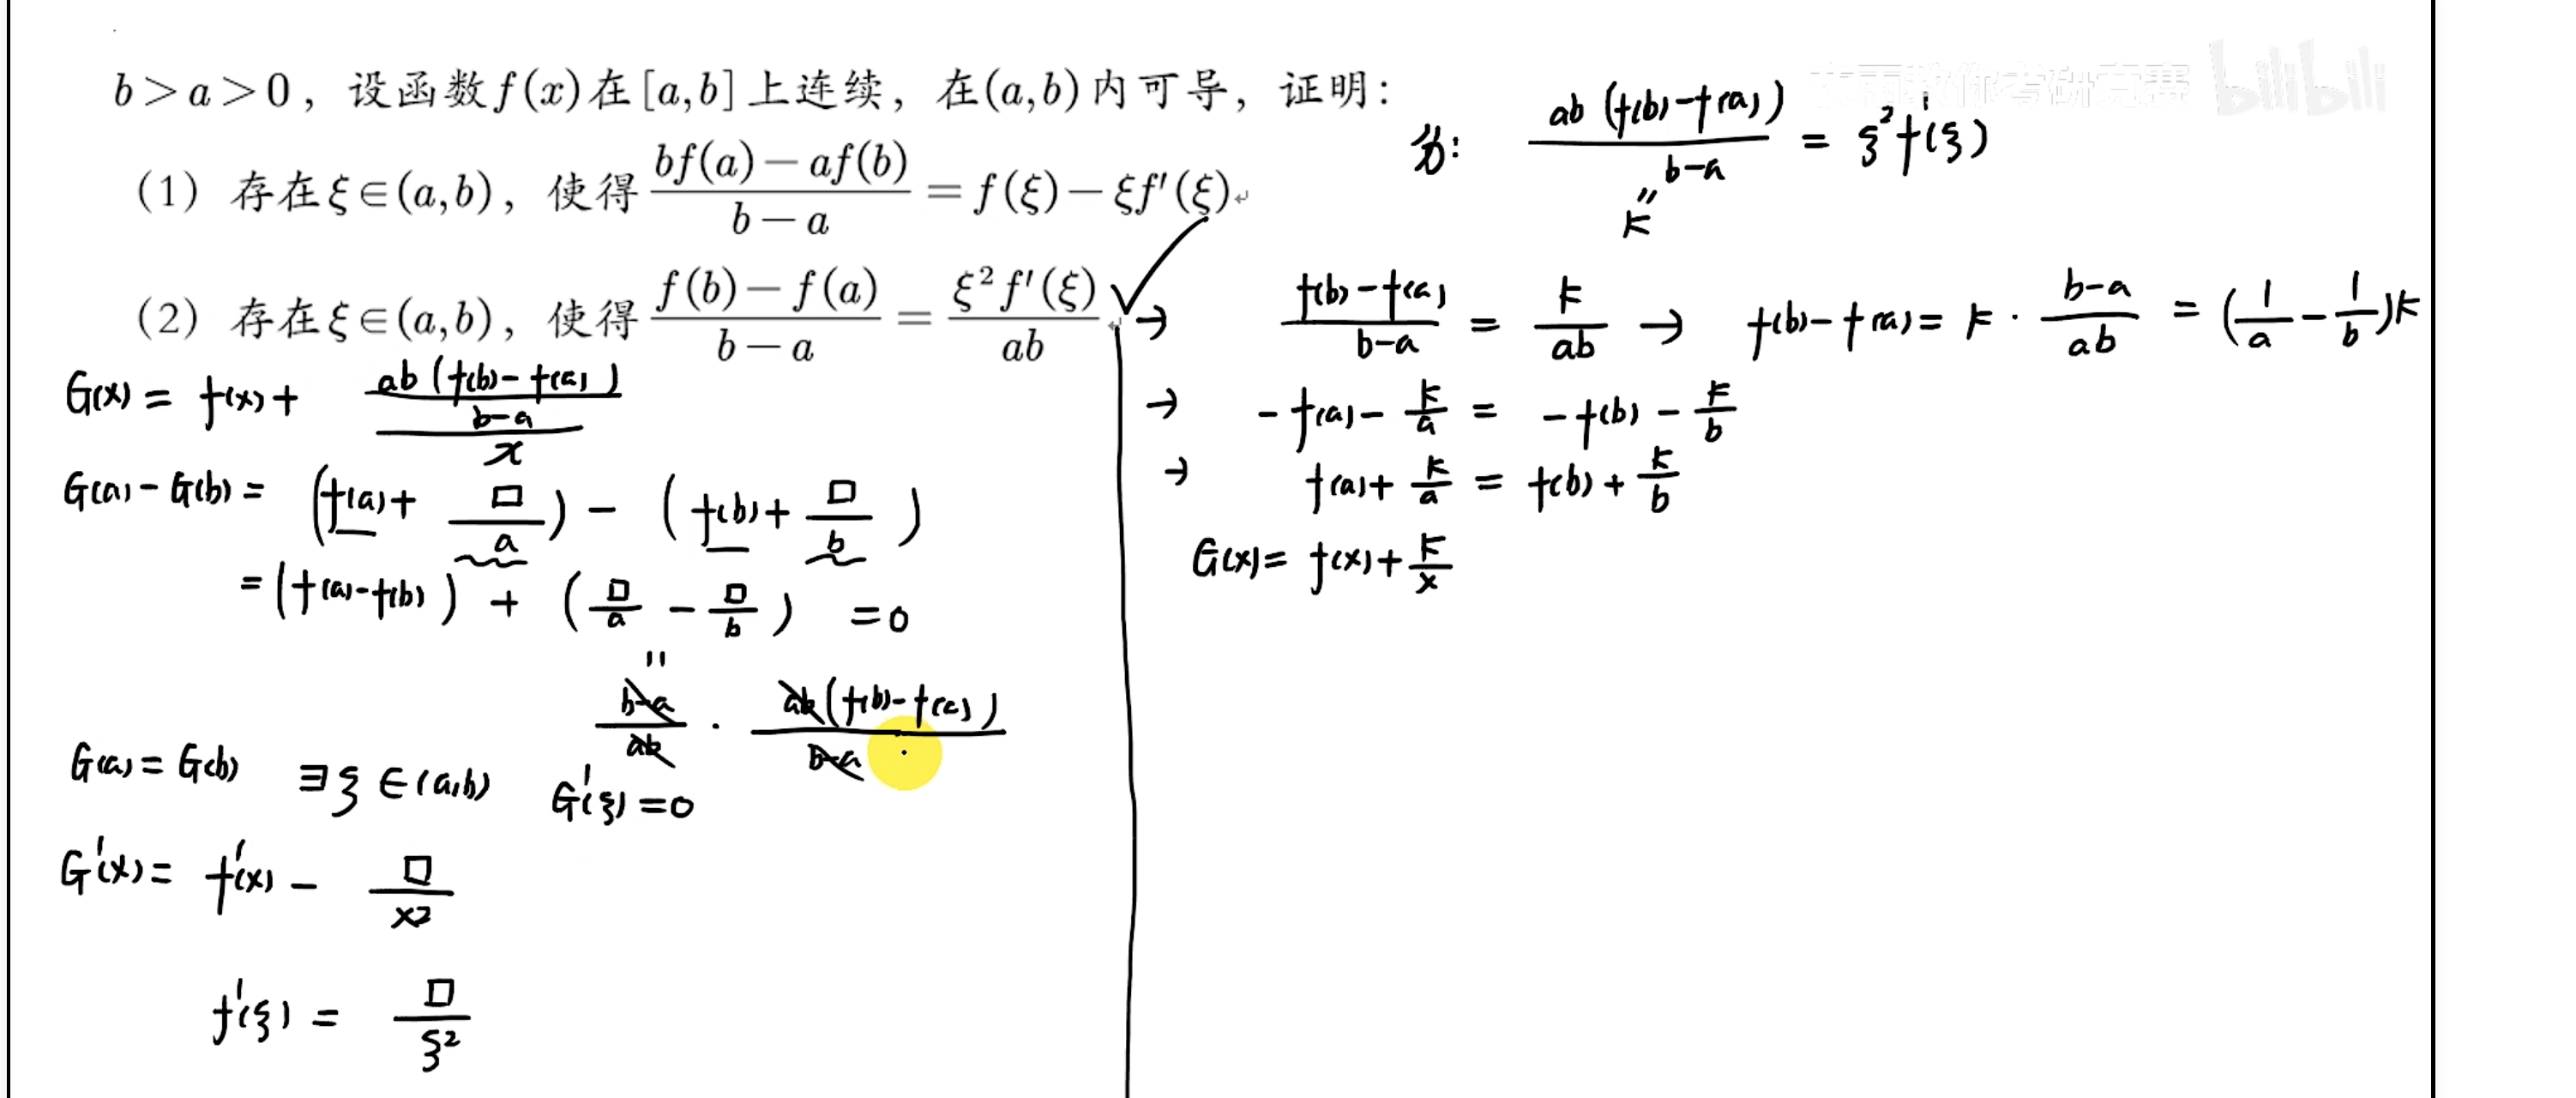 b>a>0，设函数f(x)在[a,b]上连续，在(a,b)内可导，证明：
(1) 存在ξ∈(a,b)，使得 \frac{bf(a)-af(b)}{b-a} = f(ξ)-ξf'(ξ)
(2) 存在ξ∈(a,b)，使得 \frac{f(b)-f(a)}{b-a} = \frac{ξ^2 f'(ξ)}{ab}
G(x) = f(x) + \frac{\frac{ab(f(b)-f(a))}{b-a}}{x}
G(a)-G(b) = (f(a)+\frac{□}{a}) - (f(b)+\frac{□}{b})
= (f(a)-f(b)) + (\frac{□}{a} - \frac{□}{b}) = 0
\frac{b-a}{ab} · \frac{ab(f(b)-f(a))}{b-a}
G(a)=G(b) ∃ξ∈(a,b) G'(ξ)=0
G'(x) = f'(x) - \frac{□}{x^2}
f'(ξ) = \frac{□}{ξ^2}
\frac{ab(f(b)-f(a))}{b-a} = ξ^2 f'(ξ)
k
→ \frac{f(b)-f(a)}{b-a} = \frac{k}{ab} → f(b)-f(a) = k · \frac{b-a}{ab} = (\frac{1}{a} - \frac{1}{b})k
→ -f(a) - \frac{k}{a} = -f(b) - \frac{k}{b}
→ f(a) + \frac{k}{a} = f(b) + \frac{k}{b}
G(x) = f(x) + \frac{k}{x}
bilibili